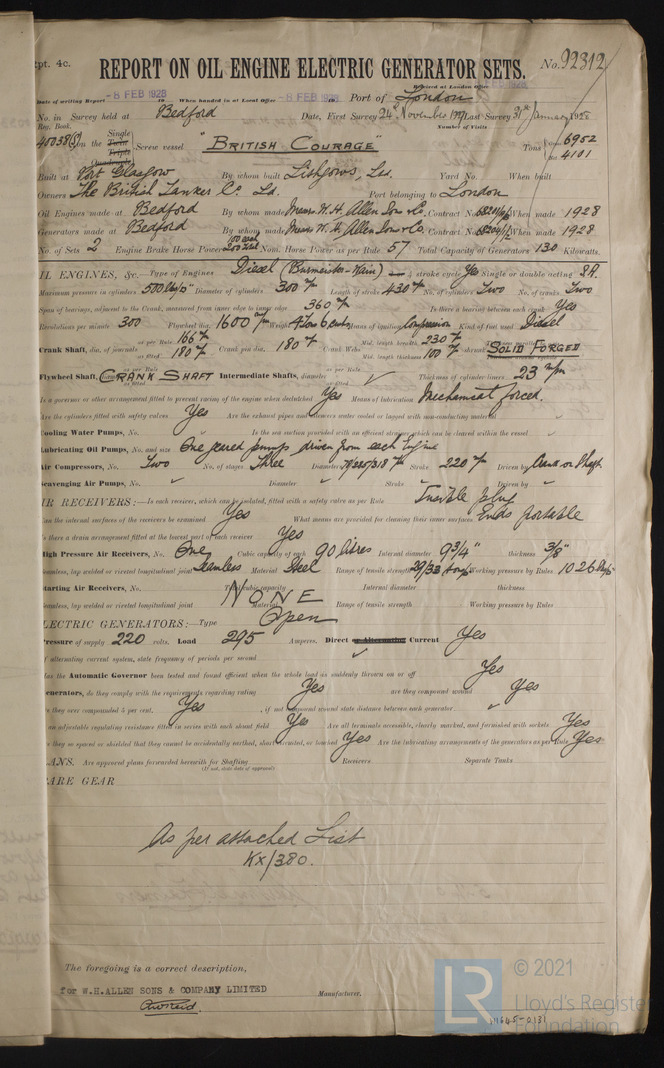 Rpt. 4c.
REPORT ON OIL ENGINE ELECTRIC GENERATOR SETS.
No. 92312
Received at London Office
Date of writing Report -8 FEB 1928 19 When handed in at Local Office -8 FEB 1928 19 Port of London
No. in Reg. Book. Survey held at Bedford Date, First Survey 24th November 1927 Last Survey 31st January 1928
Number of Visits
40058(S) on the Single Twin Triple Quadruple Screw vessel "BRITISH COURAGE" Tons Gross 6952 Net 4101
Built at Port Glasgow By whom built Lithgows, Ltd. Yard No. When built
Owners The British Tanker Co. Ld. Port belonging to London
Oil Engines made at Bedford By whom made Messrs W. H. Allen Son & Co. Contract No. When made 1928
Generators made at Bedford By whom made Messrs W. H. Allen Son & Co. Contract No. When made 1928
No. of Sets 2 Engine Brake Horse Power 100 each 200 total Nom. Horse Power as per Rule 57 Total Capacity of Generators 130 Kilowatts.
OIL ENGINES, &c.—Type of Engines Diesel (Burmeister-Wain) 4 stroke cycle Yes Single or double acting SA.
Maximum pressure in cylinders 500 lbs/□" Diameter of cylinders 300 m/m Length of stroke 430 m/m No. of cylinders Two No. of cranks Two
Span of bearings, adjacent to the Crank, measured from inner edge to inner edge 360 m/m Is there a bearing between each crank Yes
Revolutions per minute 300 Flywheel dia. 1600 m/m Weight 4 Tons 6 cwts Means of ignition Compression Kind of fuel used Diesel
Crank Shaft, dia. of journals as per Rule 166 m/m as fitted 180 m/m Crank pin dia. 180 m/m Crank Webs Mid. length breadth 230 m/m Mid. length thickness 100 m/m shrunk SOLID FORGED
Flywheel Shaft, CRANK SHAFT Intermediate Shafts, diameter as per Rule as fitted ✓ Thickness of cylinder liners 23 m/m
Is a governor or other arrangement fitted to prevent racing of the engine when declutched Yes Means of lubrication Mechanical forced
Are the cylinders fitted with safety valves Yes Are the exhaust pipes and silencers water cooled or lagged with non-conducting material
Cooling Water Pumps, No. Is the sea suction provided with an efficient strainer which can be cleared within the vessel
Lubricating Oil Pumps, No. and size One geared pump driven from each Engine
Air Compressors, No. Two No. of stages Three Diameters Stroke 220 m/m Driven by Crank on Shaft
Scavenging Air Pumps, No. Diameter Stroke Driven by
AIR RECEIVERS:—Is each receiver, which can be isolated, fitted with a safety valve as per Rule Fusible plug
Can the internal surfaces of the receivers be examined Yes What means are provided for cleaning their inner surfaces Ends portable
Is there a drain arrangement fitted at the lowest part of each receiver Yes
High Pressure Air Receivers, No. One Cubic capacity of each 90 litres Internal diameter 9¾" thickness ⅜"
Seamless, lap welded or riveted longitudinal joint Seamless Material Steel Range of tensile strength 29/33 tons Working pressure by Rules 1026 lbs/□"
Starting Air Receivers, No. Total cubic capacity Internal diameter thickness
Seamless, lap welded or riveted longitudinal joint NONE Material Range of tensile strength Working pressure by Rules
ELECTRIC GENERATORS:—Type Open
Pressure of supply 220 volts. Load 295 Amperes. Direct or Alternating Current Yes
If alternating current, state frequency of periods per second ✓
Has the Automatic Governor been tested and found efficient when the whole load is suddenly thrown on or off Yes
Generators, do they comply with the requirements regarding rating Yes are they compound wound Yes
is they over compounded 5 per cent. Yes, if not compound wound state distance between each generator ✓
Is an adjustable regulating resistance fitted in series with each shunt field Yes Are all terminals accessible, clearly marked, and furnished with sockets Yes
Are they so spaced or shielded that they cannot be accidentally earthed, short circuited, or touched Yes Are the lubricating arrangements of the generators as per Rule Yes
PLANS. Are approved plans forwarded herewith for Shafting Receivers Separate Tanks
(If not, state date of approval)
SPARE GEAR
As per attached List
Kx/380.
The foregoing is a correct description,
for W.H.ALLEN SONS & COMPANY LIMITED
Manufacturer.
LR © 2021
Lloyd's Register
Foundation